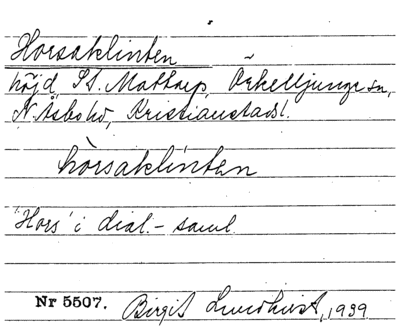 Horsaklinten
höjd, St. Mattarp, Örkelljunga sn,
N. Åsbo hd, Kristianstads l.
hòrsaklintan
'Hors' i dial.-saml
Nr 5507. Birgit Lundkvist, 1939